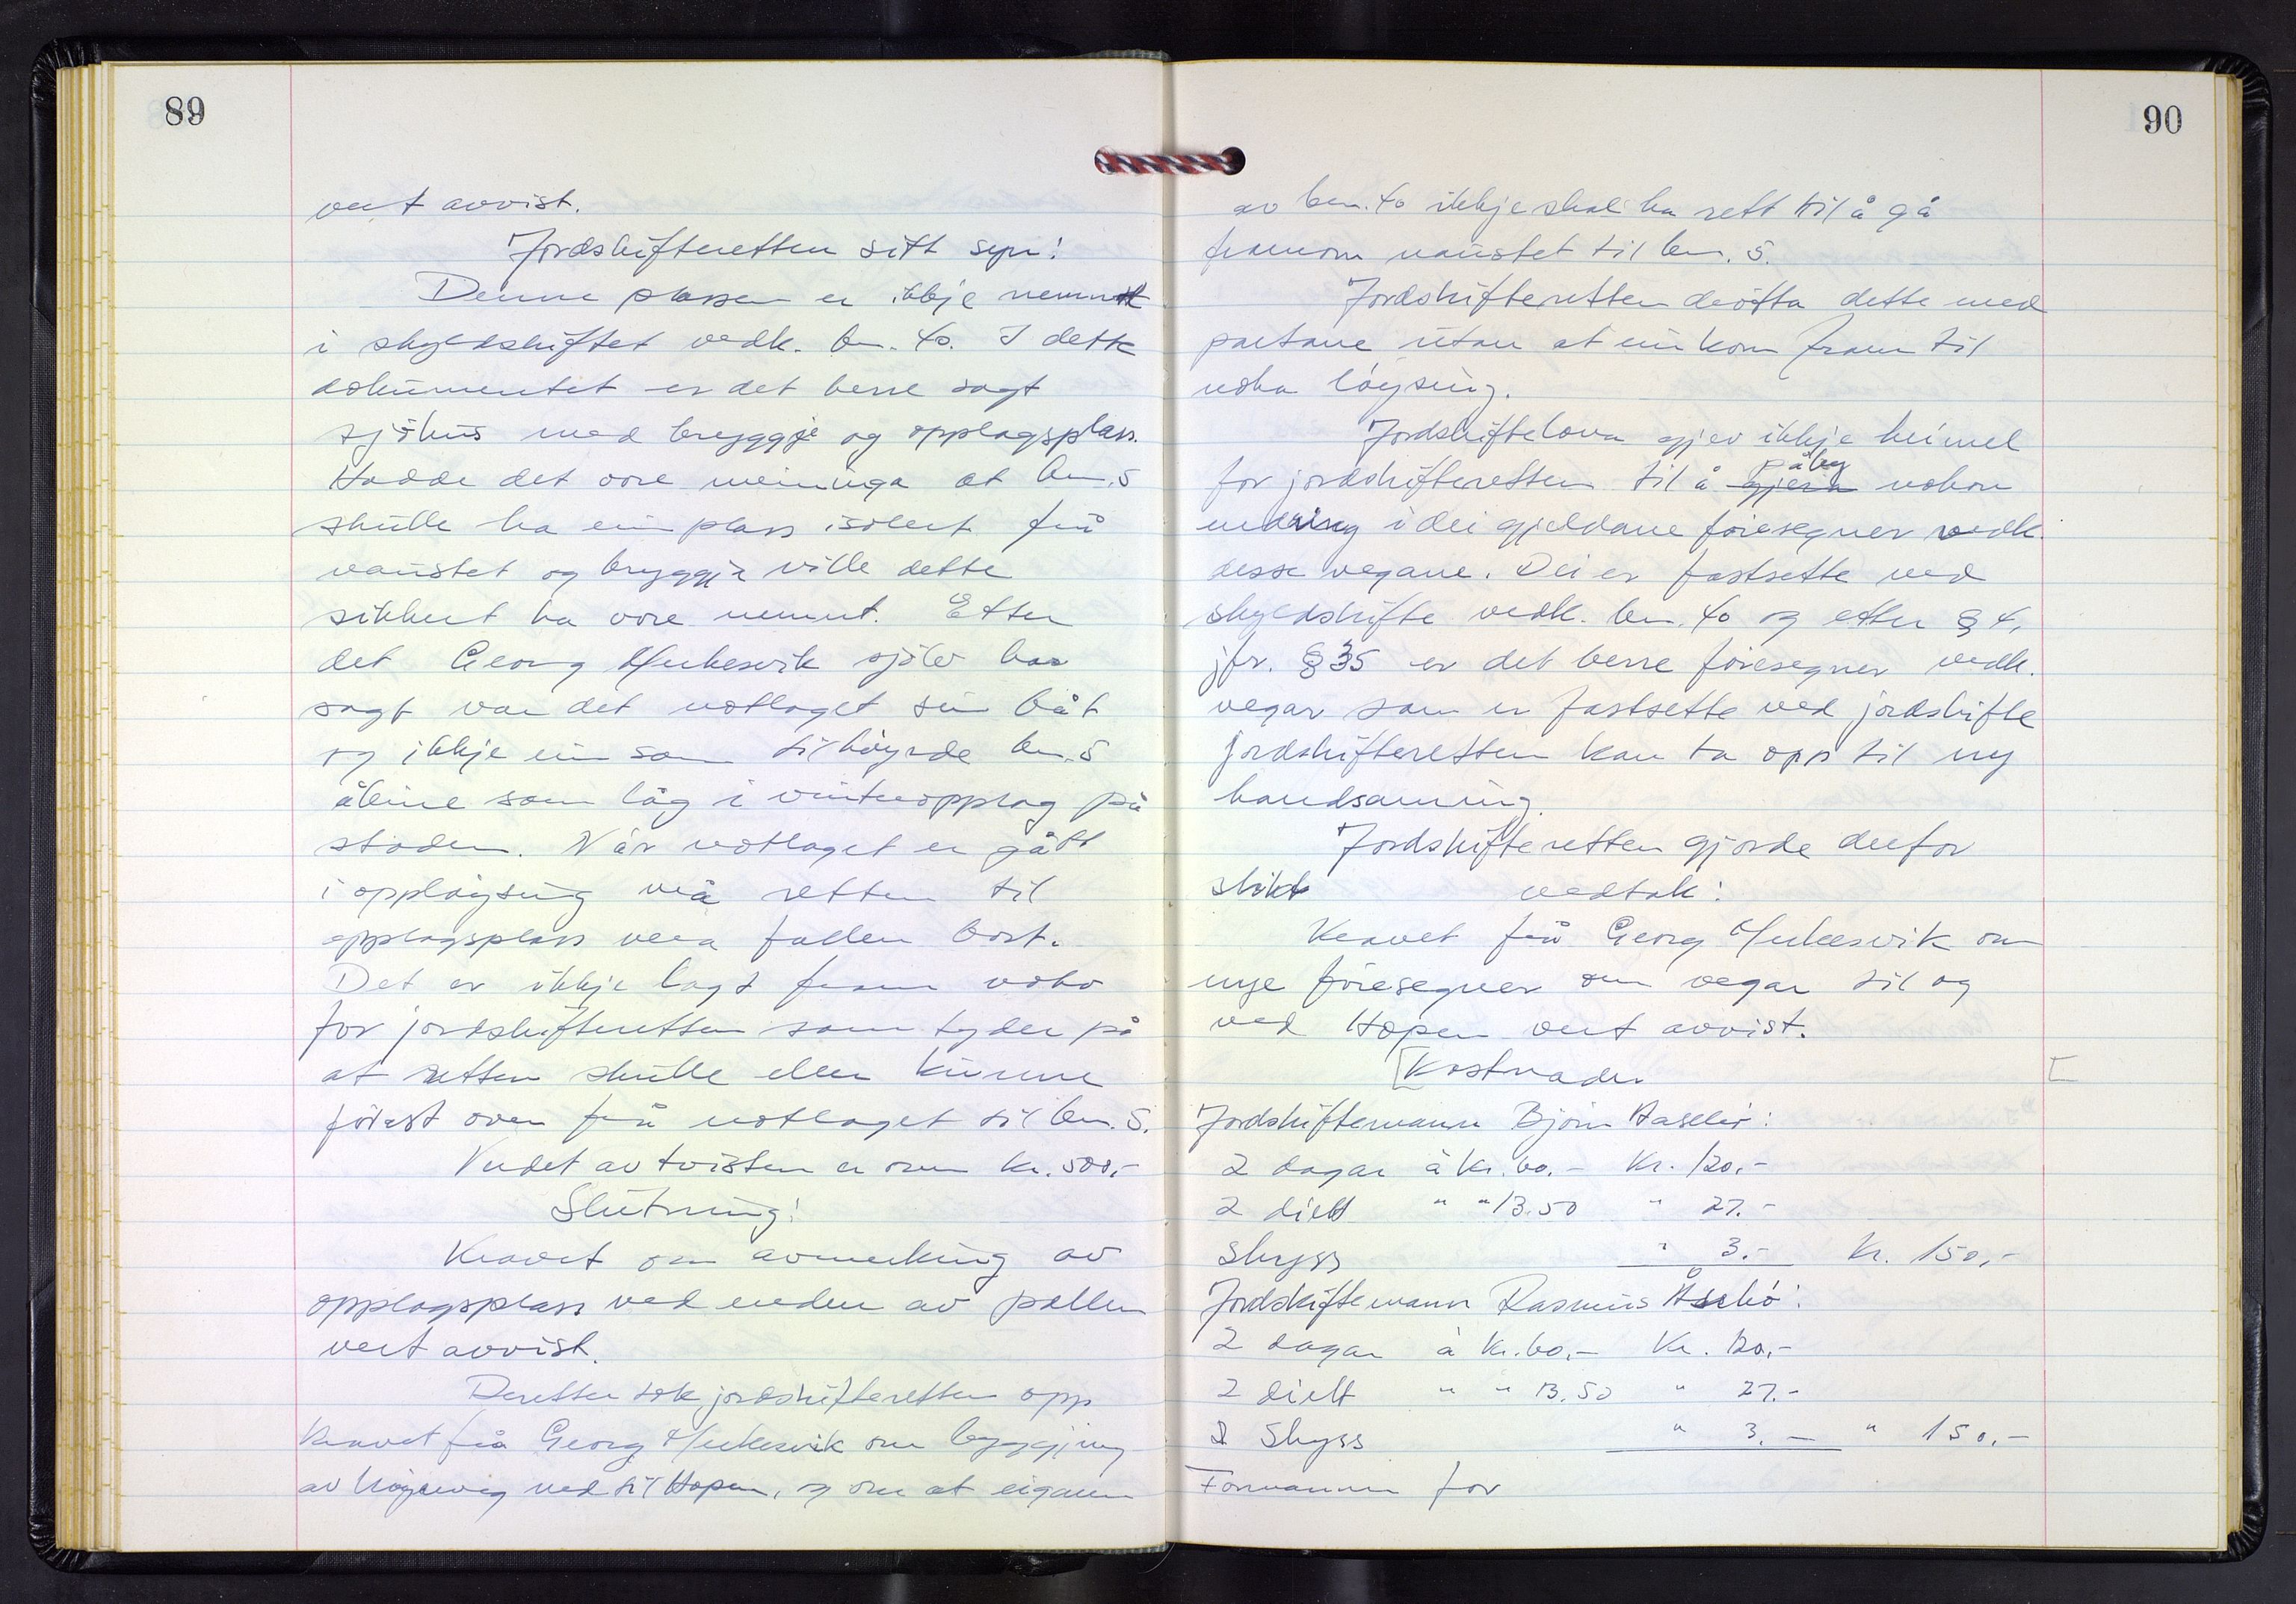 89
vert avvist.
Jordskifteretten sitt syn:
Denne plassen er ikkje nemnt
i skyldskiftet vedk. bn. 40. I dette
dokumentet er det berre sagt
sjöhus med bryggje og opplagsplass.
Hadde det vore meininga at bn. 5
skulle ha ein plass isolert frå
naustet og bryggje ville dette
sikkert ha vore nemnt. Etter
det Georg Myrkesvik sjölv har
sagt var det notlaget sin båt
og ikkje ein som tilhöyrde bn. 5
åleine som låg i vinteropplag på
staden. Når notlaget er gått
i opplöysing må retten til
opplagsplass vera fallen bort.
Det er ikkje lagt fram noko
for jordskifteretten som tyder på
at retten skulle eller kunne
förast over frå notlaget til bn. 5.
Verdet av tvisten er over kr. 500,-
Slutning:
Kravet om avmerking av
opplagsplass ved enden av pollen
vert avvist.
Deretter tok jordskifteretten opp
kravet frå Georg Myrkesvik om byggjing
av köyreveg ned til Hopen, og om at eigaren
90
av bn. 40 ikkje skal ha rett til å gå
framom naustet til bn. 5.
Jordskifteretten dröfta dette med
partane utan at ein kom fram til
noka löysing.
Jordskiftelova gjev ikkje heimel
for jordskifteretten til å gjera påby nokon
endring i dei gjeldane föresegner vedk.
desse vegane. Dei er fastsette ved
skyldskifte vedk. bn. 40 og etter § 4,
jfr. § 35 er det berre föresegner vedk.
vegar som er fastsette ved jordskifte
jordskifteretten kan ta opp til ny
handsaming.
Jordskifteretten gjorde derfor
slikt vedtak:
Kravet frå Georg Myrkesvik om
nye föresegner om vegar til og
ved Hopen vert avvist.
[Kostnader [
Jordskiftemann Björn Haslö:
2 dagar à kr. 60.- Kr. 120,-
2 diett " " 13.50 " 27.-
Skyss " 3.- Kr. 150,-
Jordskiftemann Rasmus Åskö:
2 dagar à kr. 60,- Kr. 120,-
2 diett " " 13.50 " 27.-
Skyss " 3.- " 150.-
Formann for